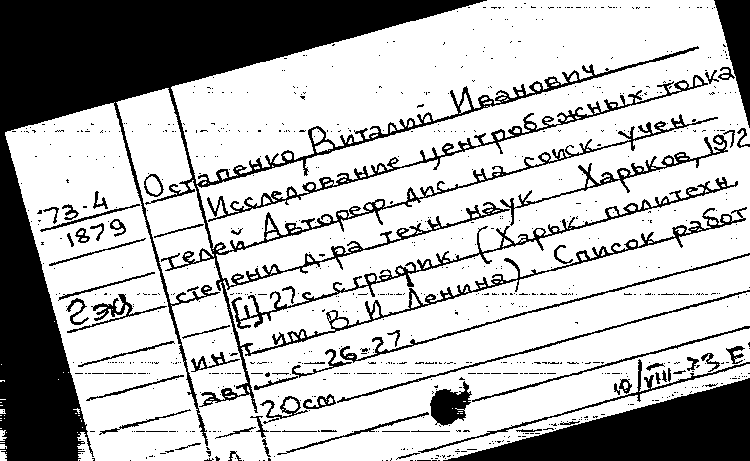 Остапенко, Виталий Иванович.
Исследование центробежных толка
73-4
телей. Автореф. дис. на соиск. учен.
1879
степени д-ра техн. наук Харьков, 1972
2 экз
[1], 27 с. с график. (Харьк. политехн.
ин-т им. В. И. Ленина). Список работ
авт.: с. 26-27.
20 см.
10/VIII-73 Е